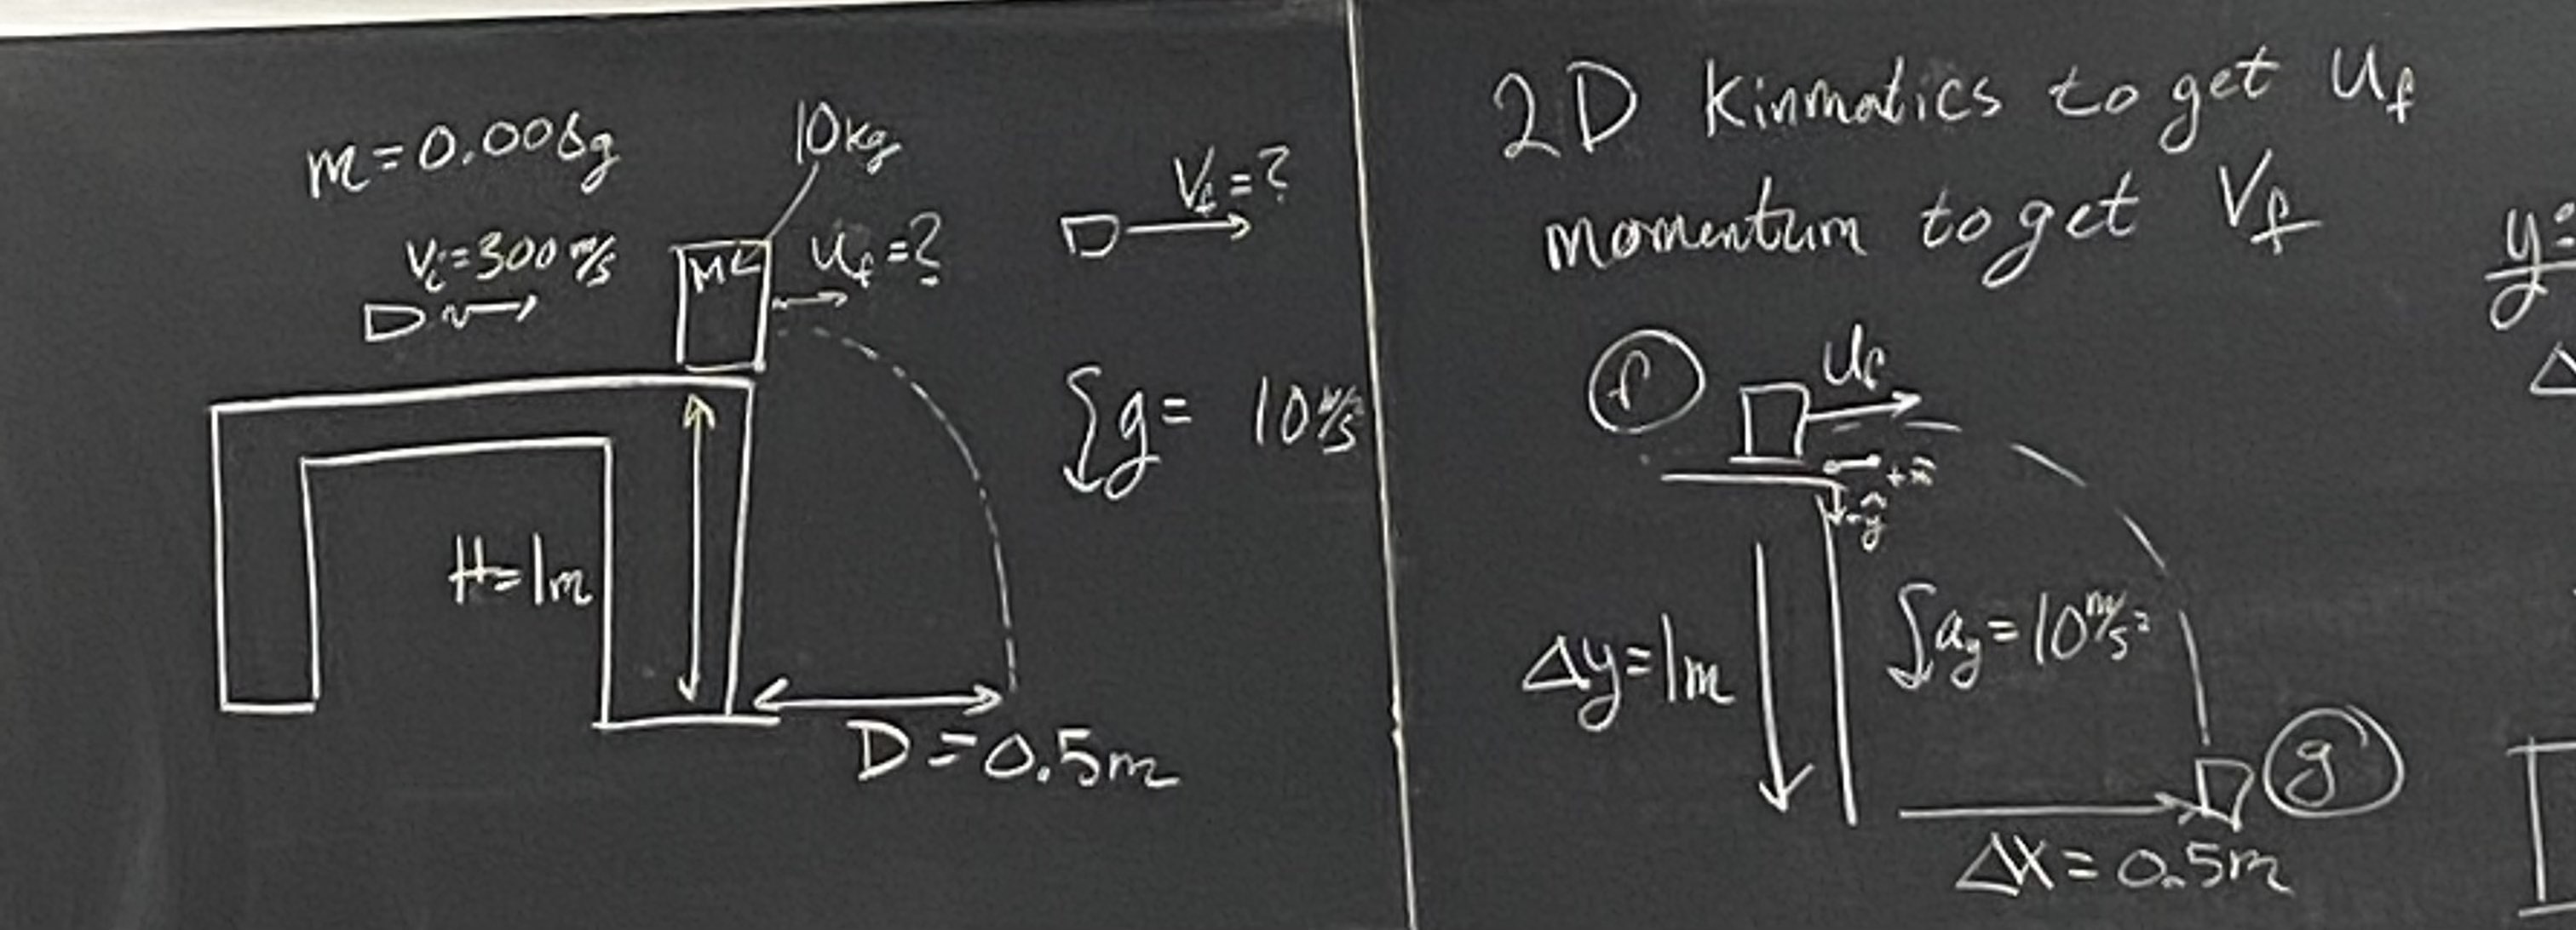 m=0.006g
10kg
Vi=300 m/s
M
Uf=?
Vf=?
g= 10 m/s
H=1m
D=0.5m
2D Kinmatics to get Uf
momentum to get Vf
f
Uf
+x̂
-ŷ
Δy=1m
ay=10 m/s²
g
Δx=0.5m
y=
Δ